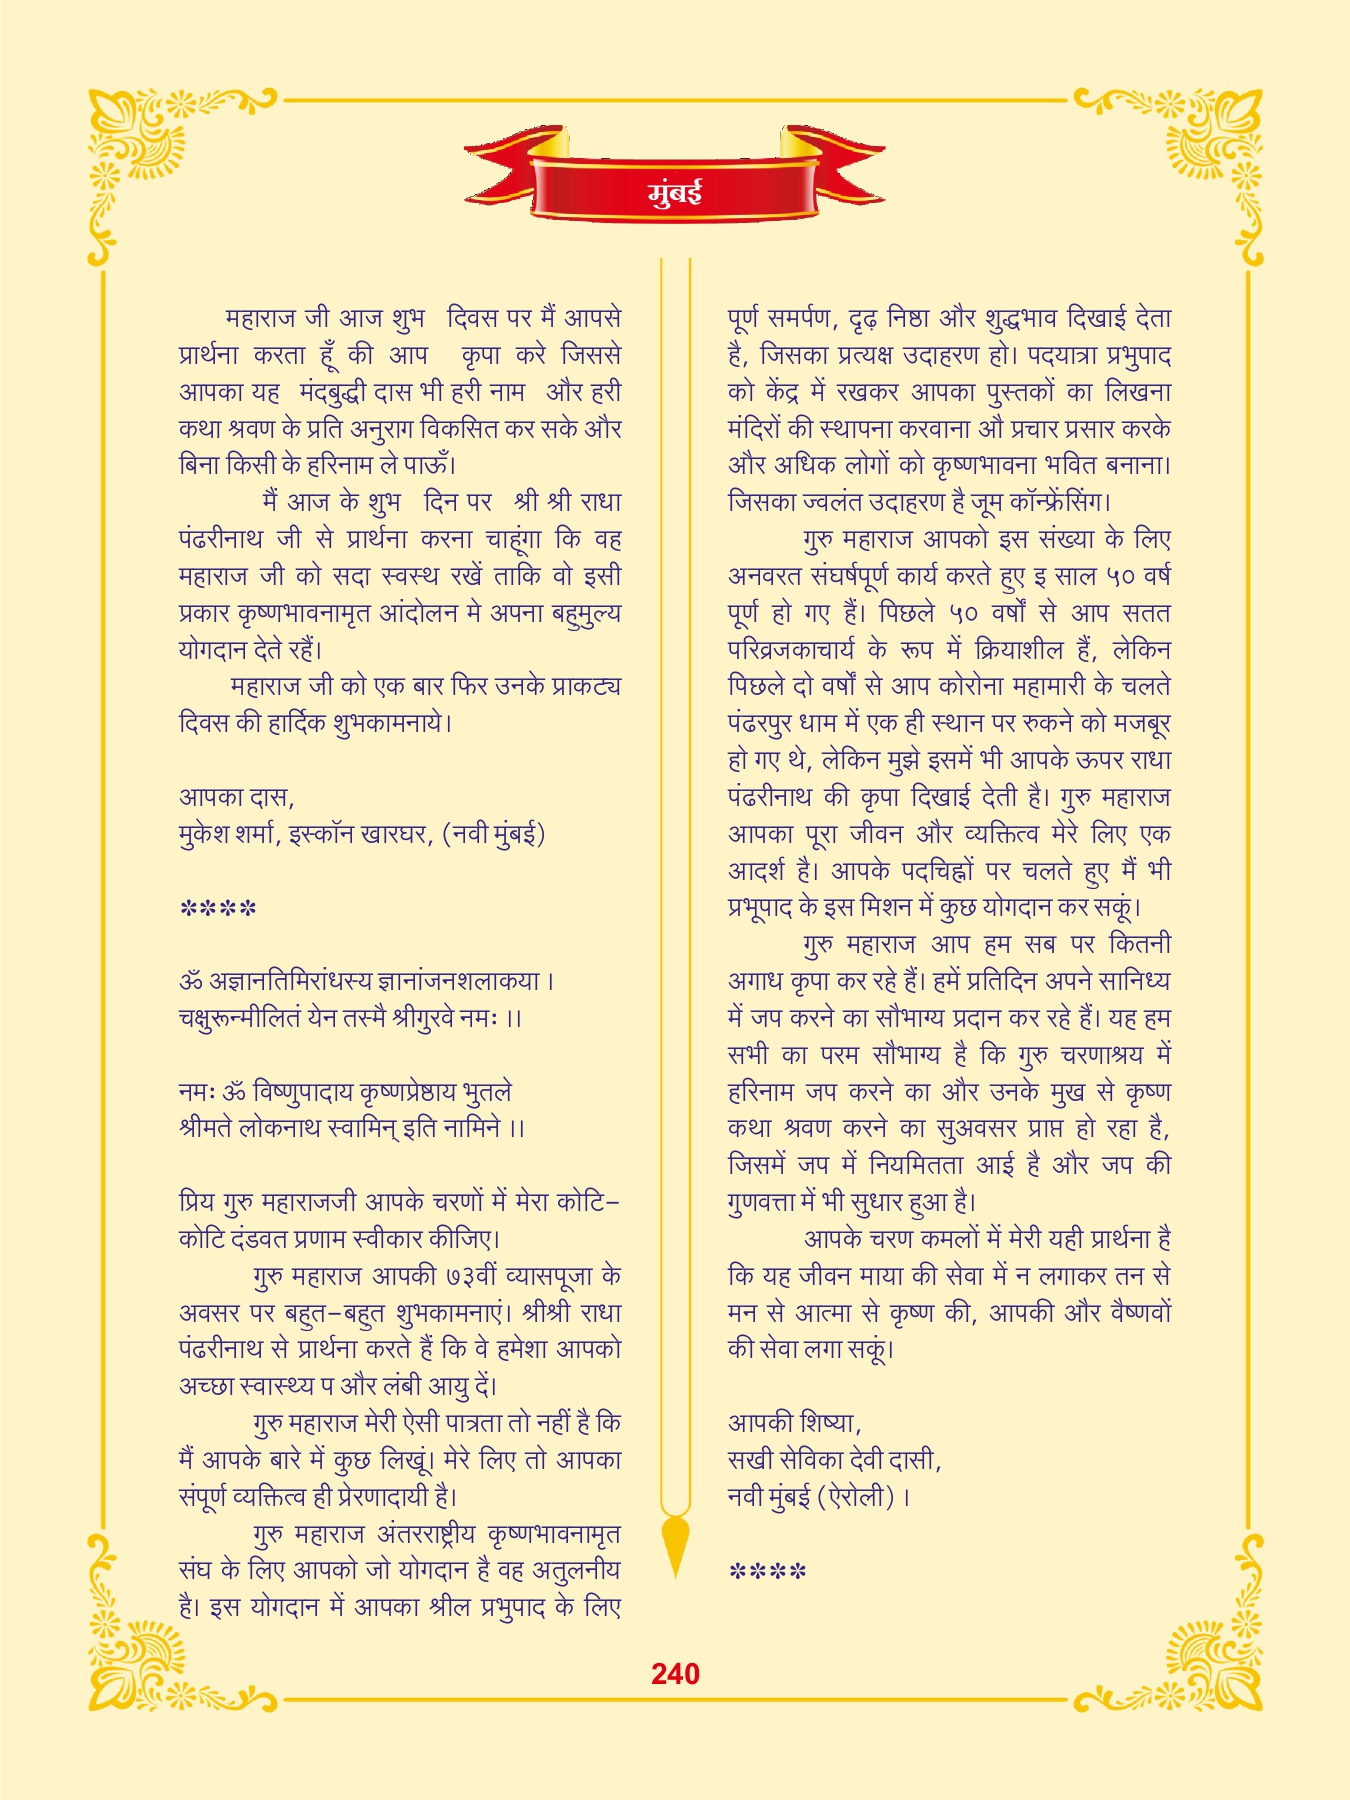 मुंबई
महाराज जी आज शुभ दिवस पर मैं आपसे
प्रार्थना करता हूँ की आप कृपा करे जिससे
आपका यह मंदबुद्धी दास भी हरी नाम और हरी
कथा श्रवण के प्रति अनुराग विकसित कर सके और
बिना किसी के हरिनाम ले पाऊँ।
मैं आज के शुभ दिन पर श्री श्री राधा
पंढरीनाथ जी से प्रार्थना करना चाहूंगा कि वह
महाराज जी को सदा स्वस्थ रखें ताकि वो इसी
प्रकार कृष्णभावनामृत आंदोलन मे अपना बहुमुल्य
योगदान देते रहैं।
महाराज जी को एक बार फिर उनके प्राकट्य
दिवस की हार्दिक शुभकामनाये।
आपका दास,
मुकेश शर्मा, इस्कॉन खारघर, (नवी मुंबई)
****
ॐ अज्ञानतिमिरांधस्य ज्ञानांजनशलाकया ।
चक्षुरून्मीलितं येन तस्मै श्रीगुरवे नमः ।।
नमः ॐ विष्णुपादाय कृष्णप्रेष्ठाय भुतले
श्रीमते लोकनाथ स्वामिन् इति नामिने ।।
प्रिय गुरु महाराजजी आपके चरणों में मेरा कोटि-
कोटि दंडवत प्रणाम स्वीकार कीजिए।
गुरु महाराज आपकी ७३वीं व्यासपूजा के
अवसर पर बहुत-बहुत शुभकामनाएं। श्रीश्री राधा
पंढरीनाथ से प्रार्थना करते हैं कि वे हमेशा आपको
अच्छा स्वास्थ्य प और लंबी आयु दें।
गुरु महाराज मेरी ऐसी पात्रता तो नहीं है कि
मैं आपके बारे में कुछ लिखूं। मेरे लिए तो आपका
संपूर्ण व्यक्तित्व ही प्रेरणादायी है।
गुरु महाराज अंतरराष्ट्रीय कृष्णभावनामृत
संघ के लिए आपको जो योगदान है वह अतुलनीय
है। इस योगदान में आपका श्रील प्रभुपाद के लिए
पूर्ण समर्पण, दृढ़ निष्ठा और शुद्धभाव दिखाई देता
है, जिसका प्रत्यक्ष उदाहरण हो। पदयात्रा प्रभुपाद
को केंद्र में रखकर आपका पुस्तकों का लिखना
मंदिरों की स्थापना करवाना औ प्रचार प्रसार करके
और अधिक लोगों को कृष्णभावना भवित बनाना।
जिसका ज्वलंत उदाहरण है जूम कॉन्फ्रेंसिंग।
गुरु महाराज आपको इस संख्या के लिए
अनवरत संघर्षपूर्ण कार्य करते हुए इ साल ५० वर्ष
पूर्ण हो गए हैं। पिछले ५० वर्षों से आप सतत
परिव्रजकाचार्य के रूप में क्रियाशील हैं, लेकिन
पिछले दो वर्षों से आप कोरोना महामारी के चलते
पंढरपुर धाम में एक ही स्थान पर रुकने को मजबूर
हो गए थे, लेकिन मुझे इसमें भी आपके ऊपर राधा
पंढरीनाथ की कृपा दिखाई देती है। गुरु महाराज
आपका पूरा जीवन और व्यक्तित्व मेरे लिए एक
आदर्श है। आपके पदचिह्नों पर चलते हुए मैं भी
प्रभूपाद के इस मिशन में कुछ योगदान कर सकूं।
गुरु महाराज आप हम सब पर कितनी
अगाध कृपा कर रहे हैं। हमें प्रतिदिन अपने सानिध्य
में जप करने का सौभाग्य प्रदान कर रहे हैं। यह हम
सभी का परम सौभाग्य है कि गुरु चरणाश्रय में
हरिनाम जप करने का और उनके मुख से कृष्ण
कथा श्रवण करने का सुअवसर प्राप्त हो रहा है,
जिसमें जप में नियमितता आई है और जप की
गुणवत्ता में भी सुधार हुआ है।
आपके चरण कमलों में मेरी यही प्रार्थना है
कि यह जीवन माया की सेवा में न लगाकर तन से
मन से आत्मा से कृष्ण की, आपकी और वैष्णवों
की सेवा लगा सकूं।
आपकी शिष्या,
सखी सेविका देवी दासी,
नवी मुंबई (ऐरोली) ।
****
240